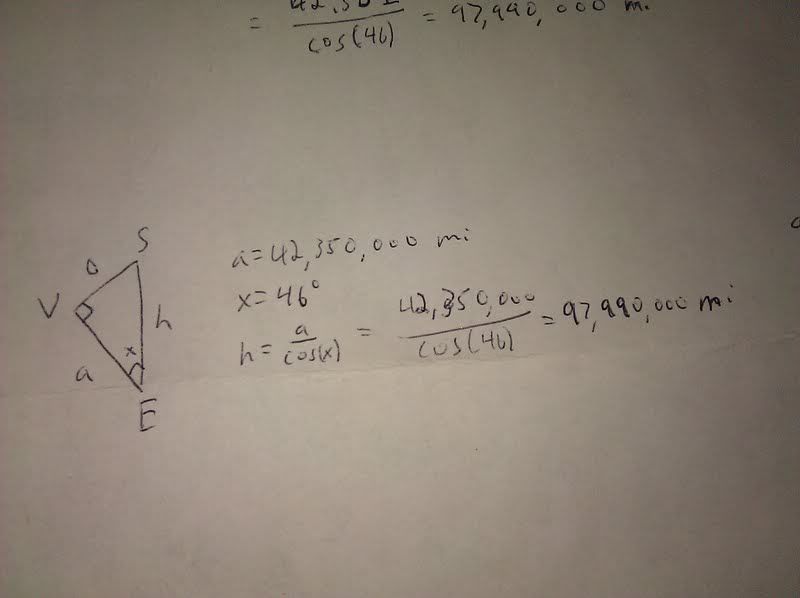 = 42,350 / cos(46) = 97,990,000 mi
S
o
V
h
x
a
E
a=42,350,000 mi
x=46°
h = a/cos(x) = 42,350,000/cos(46) = 97,990,000 mi